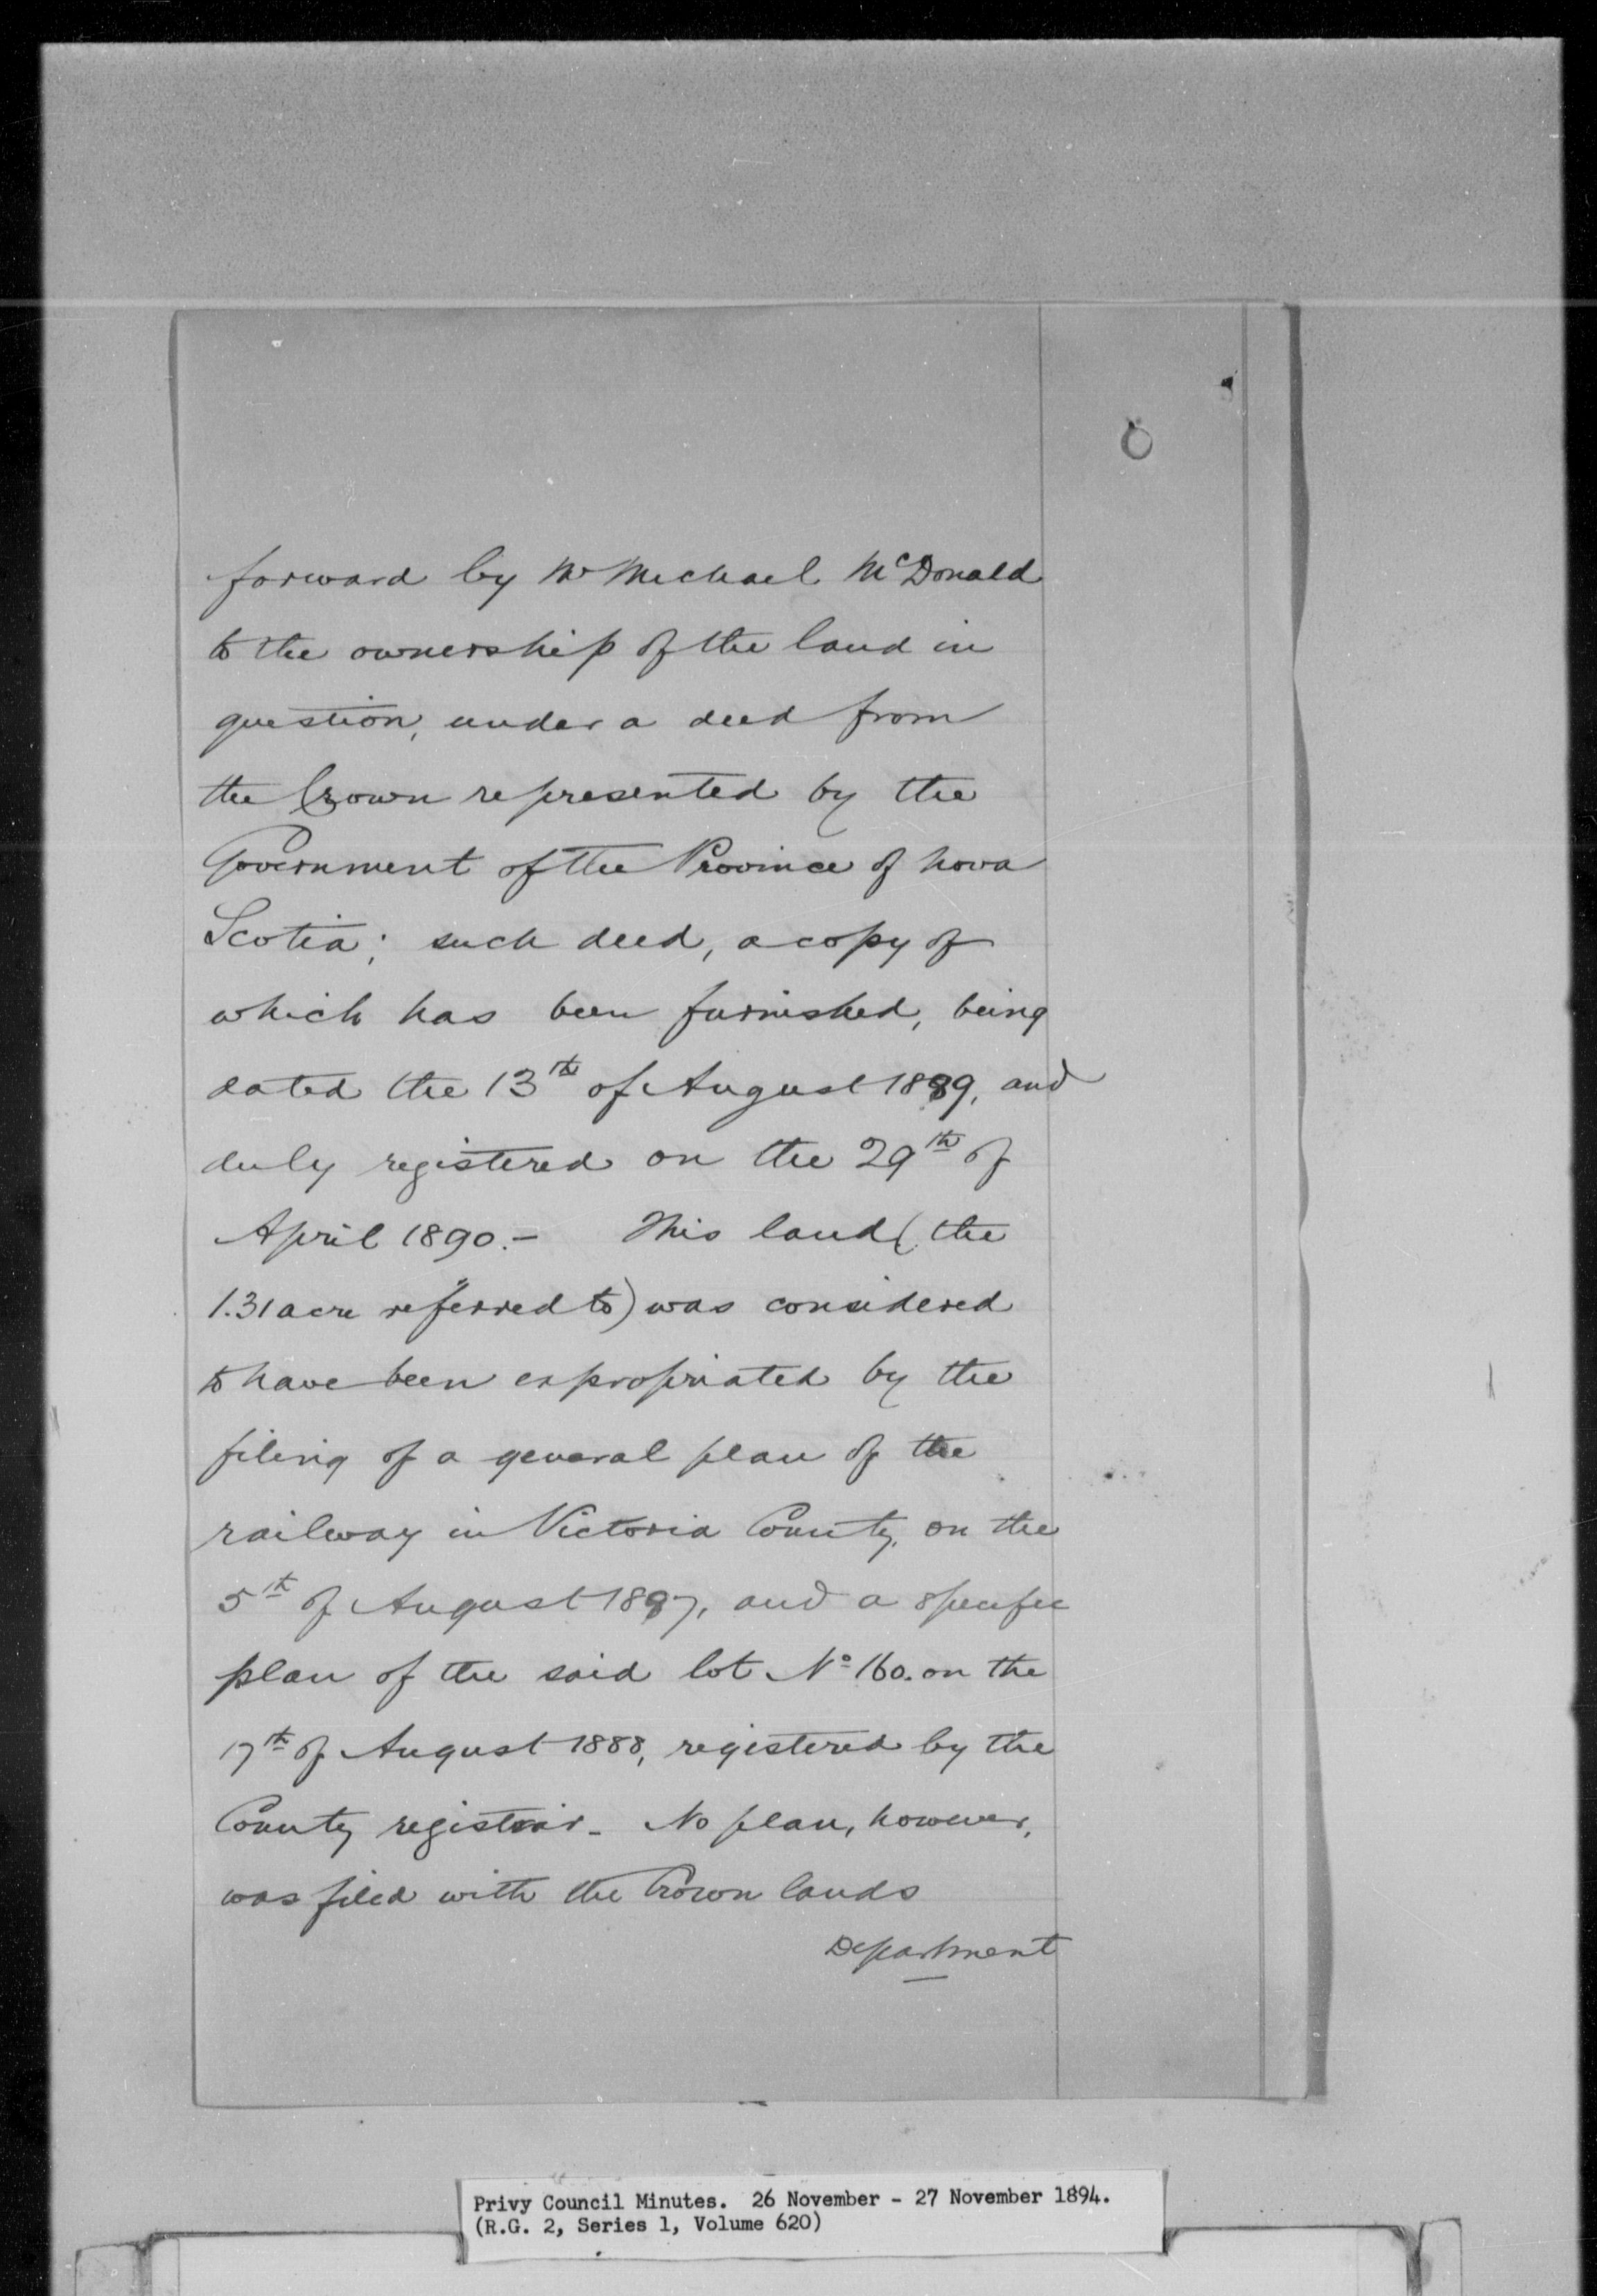 forward by Mr Michael McDonald
to the ownership of the land in
question, under a deed from
the Crown represented by the
Government of the Province of Nova
Scotia; such deed, a copy of
which has been furnished, being
dated the 13th of August 1889, and
duly registered on the 29th of
April 1890.- This land (the
1.31 acre referred to) was considered
to have been expropriated by the
filing of a general plan of the
railway in Victoria County, on the
5th of August 1887, and a specific
plan of the said lot No 160. on the
17th of August 1888, registered by the
County registrar - No plan, however,
was filed with the Crown lands
Department
Privy Council Minutes. 26 November - 27 November 1894.
(R.G. 2, Series 1, Volume 620)